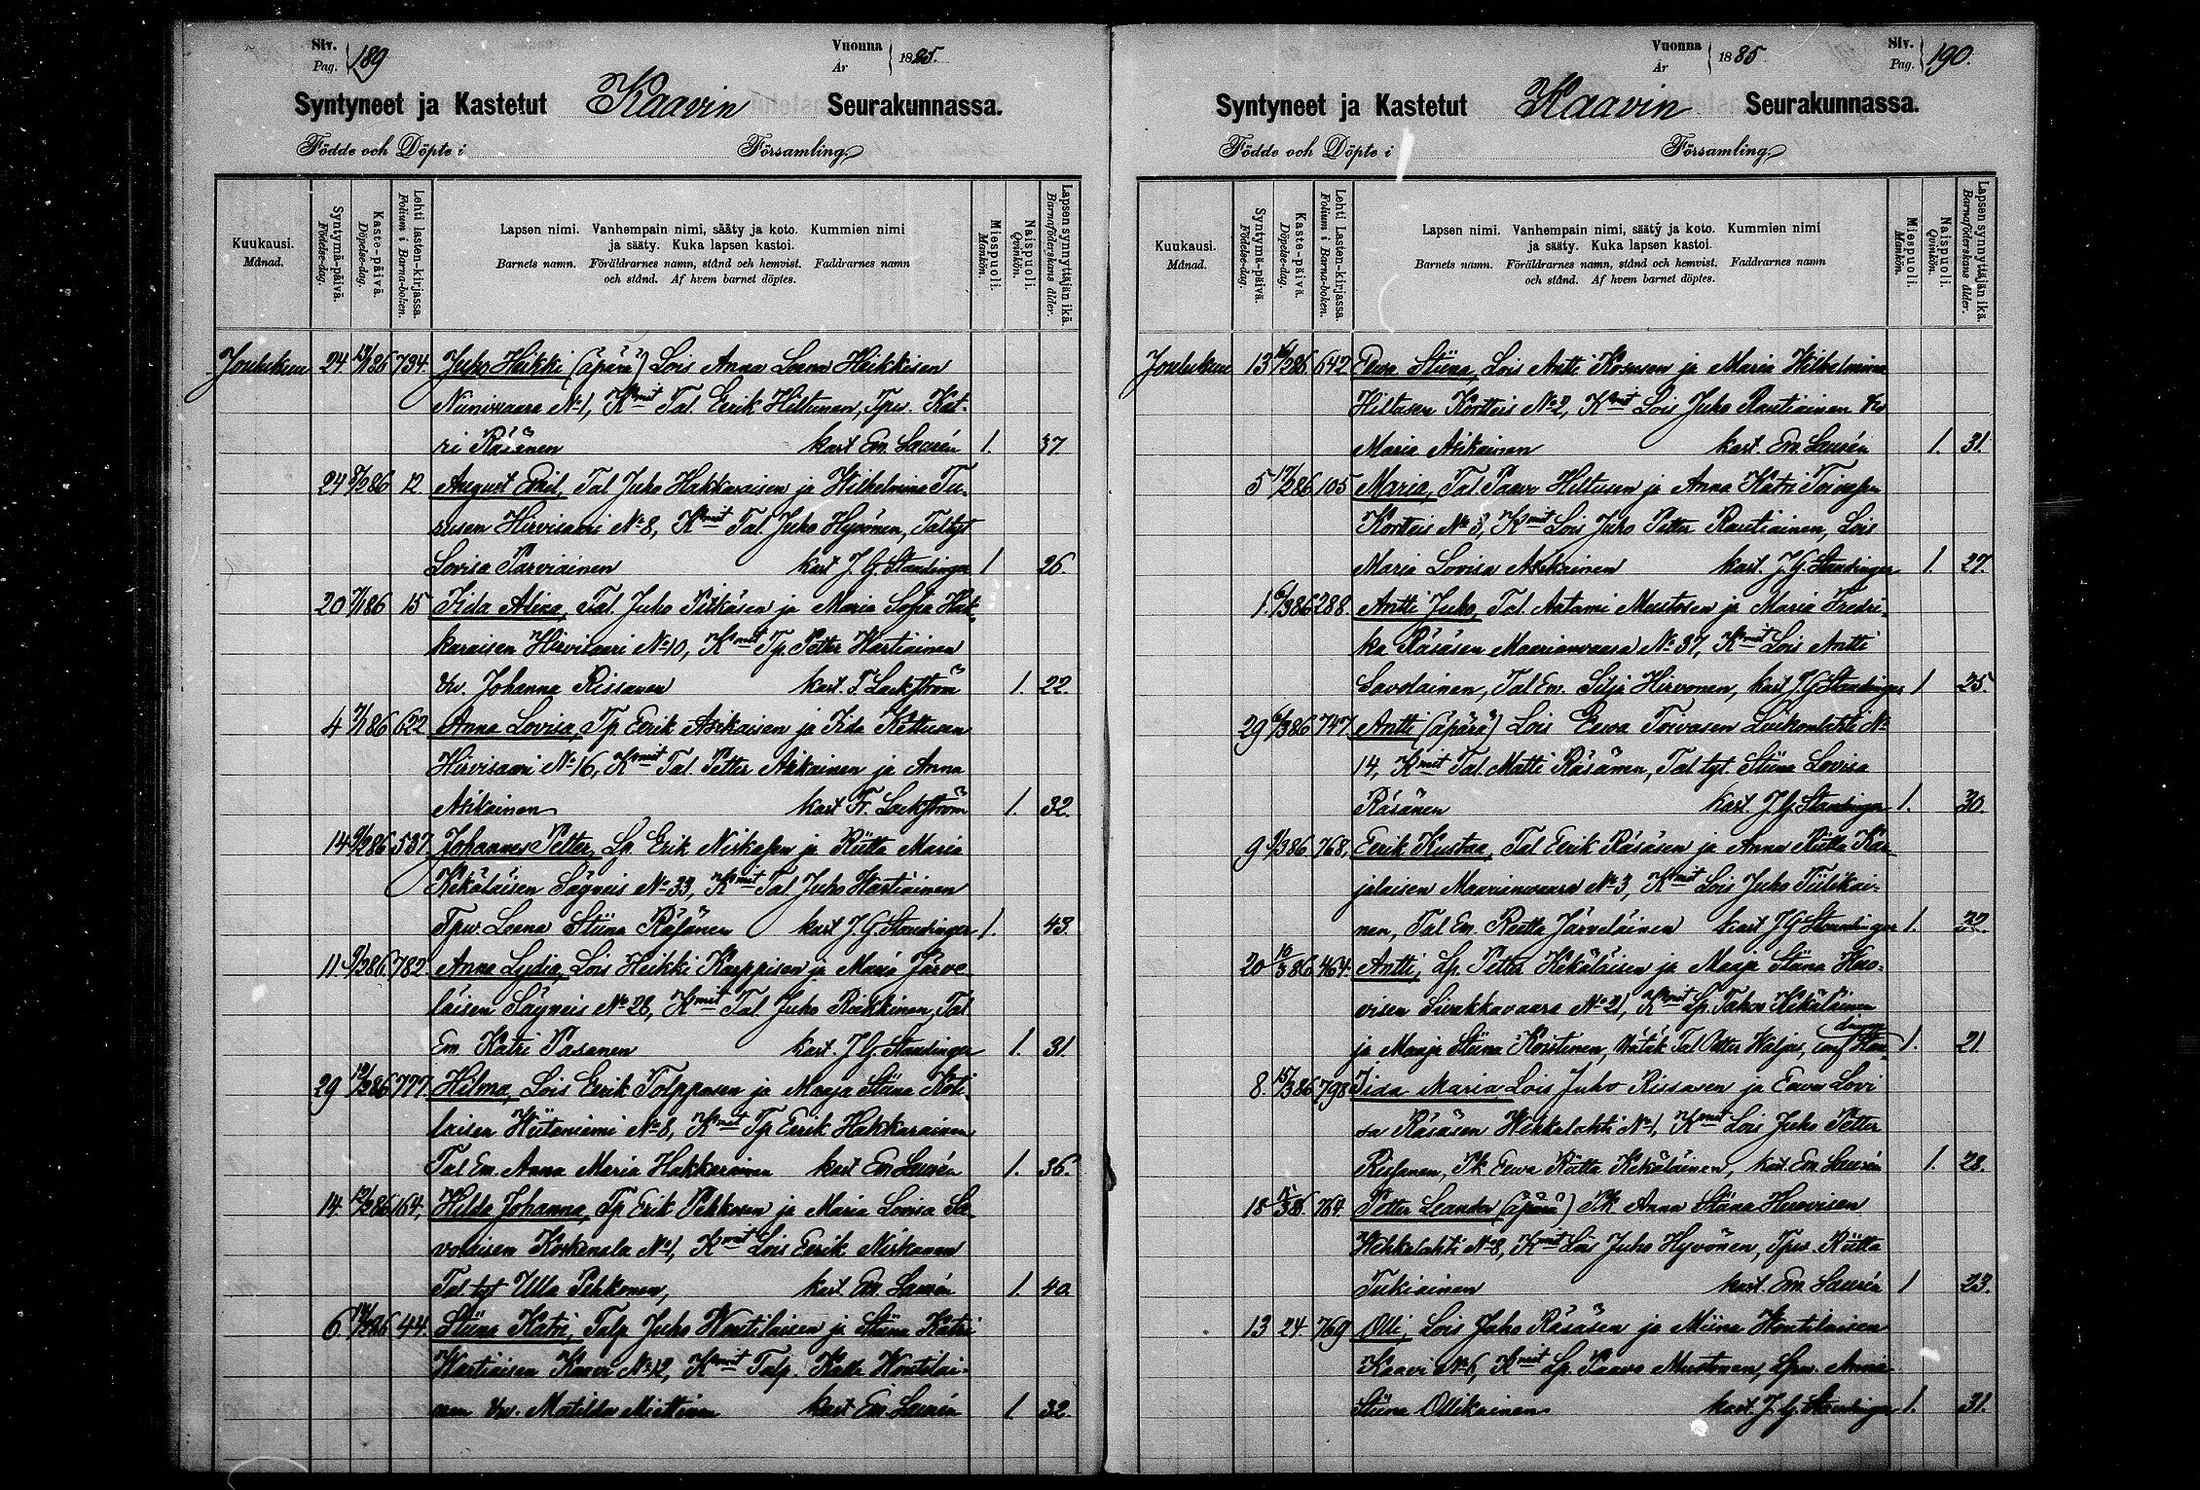 Siv. Pag. 189
Vuonna År 1885.
Syntyneet ja Kastetut Kaavin Seurakunnassa.
Födde och Döpte i Församling.
Kuukausi. Månad.
Syntymä-päivä. Födelse-dag.
Kaste-päivä. Döpelse-dag.
Lehti lasten-kirjassa. Folium i Barna-boken.
Lapsen nimi. Vanhempain nimi, sääty ja koto. Kummien nimi
ja sääty. Kuka lapsen kastoi.
Barnets namn. Föräldrarnes namn, stånd och hemvist. Faddrarnes namn
och stånd. Af hvem barnet döptes.
Miespuoli. Mankön.
Naispuoli. Qvinkön.
Lapsen synnyttäjän ikä. Barnaföderskans ålder.
Joulukuu 24 794. Juho Heikki (äpärä) Lois Anna Leena Heikkisen
Niinivaara No 1, Kmit Tal. Eerik Hiltunen, Tpv. Kat-
ri Räsänen kast Em. Laurén 1. 37
24 12 August Emil, Tal Juho Hakkaraisen ja Wilhelmina Tu-
rusen Hirvisaari No 8, Kmit Tal. Juho Hyvönen, Tal tyt
Lovisa Parviainen kast J. G. Standinger 1 26.
20 7/1 86 15 Iida Alina, Tal. Juho Pitkäsen ja Maria Sofia Hak-
karaisen Hirvisaari No 10, Kmit Tp. Petter Wartiainen
Johanna Rissanen kast. F Lackström 1. 22.
4 7/1 86 622 Anna Lovisa, Tp Eerik Asikaisen ja Iida Kettusen
Hirvisaari No 16, Kmit Tal. Petter Asikainen ja Anna
Asikainen kast Fr. Lackström 1. 32.
14 537 Johannes Petter, Lp. Erik Niskasen ja Riitta Maria
Kekäläisen Säyneis No 33, Kmit Tal Juho Wartiainen
Tpv. Leena Stiina Räsänen kast J. G. Standinger 1. 43.
11 782 Anna Lydia, Lois Heikki Karppisen ja Maria Järve-
läisen Säyneis No 28, Kmit Tal Juho Riekkinen, Tal
Em. Katri Pasanen kast. J G. Standinger 1. 31
29 777. Hilma, Lois Eerik Tolppasen ja Maaja Stiina Koti-
laisen Wiitaniemi No 8, Kmit Tp Eerik Hakkarainen
Tal Em. Anna Maria Hakkarainen kast Em Laurén 1. 36.
14. 12/2 86 164, Hilda Johanna, Tp Erik Pekkosen ja Maria Lovisa Sa-
volaisen Koskenala No 1, Kmit Lois Eerik Niskanen
Tal tyt Ulla Pekkonen, kast. Em. Laurén 1. 40
6. 44. Stiina Katri, Talp Juho Wontilaisen ja Stiina Katri
Wartiaisen Kaavi No 12, Kmit Talp. Kalle Wontilai-
nen Matilda Miettinen kast Em. Laurén 1. 32.
Vuonna År 1885.
Siv. Pag. 190.
Syntyneet ja Kastetut Kaavin Seurakunnassa.
Födde och Döpte i Församling.
Kuukausi. Månad.
Syntymä-päivä. Födelse-dag.
Kaste-päivä. Döpelse-dag.
Lehti Lasten-kirjassa. Folium i Barna-boken.
Lapsen nimi. Vanhempain nimi, sääty ja koto. Kummien nimi
ja sääty. Kuka lapsen kastoi.
Barnets namn. Föräldrarnes namn, stånd och hemvist. Faddrarnes namn
och stånd. Af hvem barnet döptes.
Miespuoli. Mankön.
Naispuoli. Qvinkön.
Lapsen synnyttäjän ikä. Barnaföderskans ålder.
Joulukuu 13 642 Eewa Stiina, Lois Antti Kososen ja Maria Wilhelmina
Hiltusen Kortteis No 2, Kmit Lois Juho Rautiainen
Maria Asikainen kast. Em. Laurén 1. 31.
5 17/2 86 105 Maria, Tal Paavo Hiltusen ja Anna Katri Toivasen
Kortteis No 3, Kmit Lois Juho Petter Rautiainen, Lois
Maria Lovisa Asikainen kast. J G. Standinger 1. 27.
1. 288. Antti Juho, Tal. Aatami Mustosen ja Maria Fredri-
ka Räsäsen Maarianvaara No 37, Kmit Lois Antti
Savolainen, Tal Em. Silja Hirvonen, kast J G Standinger 1 25.
29 747. Antti (äpärä) Lois Eewa Toivasen Luikonlahti No
14, Kmit Tal. Matti Räsänen, Tal. tyt. Stiina Lovisa
Räsänen kast. J G. Standinger 1. 30.
9 768, Eerik Kustaa, Tal Eerik Räsäsen ja Anna Riitta Kar-
jalaisen Maarianvaara No 3, Kmit Lois Juho Tiilikai-
nen, Tal Em. Reetta Järveläinen kast J G Standinger 1.
20 10/3 86 464. Antti, Lp. Petter Kekäläisen ja Maaja Stiina Huo-
visen Sivakkavaara No 21, Kmit Lp. Kekäläinen
ja Maaja Stiina Koistinen, hätäk Tal Petter 1. 21.
8. 15/3 86 798 Iida Maria Lois Juho Rissasen ja Eewa Lovi
sa Räsäsen Wehkalahti No 1, Kmit Lois Juho Petter
Rissanen, Pk Eewa Riitta Kekäläinen, kast. Em. Laurén 1. 28.
18 764. Petter Leander (äpärä) Pk. Anna Stiina Huovisen
Wehkalahti No 8, Kmit Lois Juho Hyvönen, Tpv. Riitta
Tukiainen kast. Em. Laurén 1 23.
13 24 769 Olli, Lois Juho Räsäsen ja Miina Wontilaisen
Kaavi No 6, Kmit Lp. Paavo Mustonen, Lpv. Anna
Stiina Ollikainen kast. J. G. Standinger 1. 31.